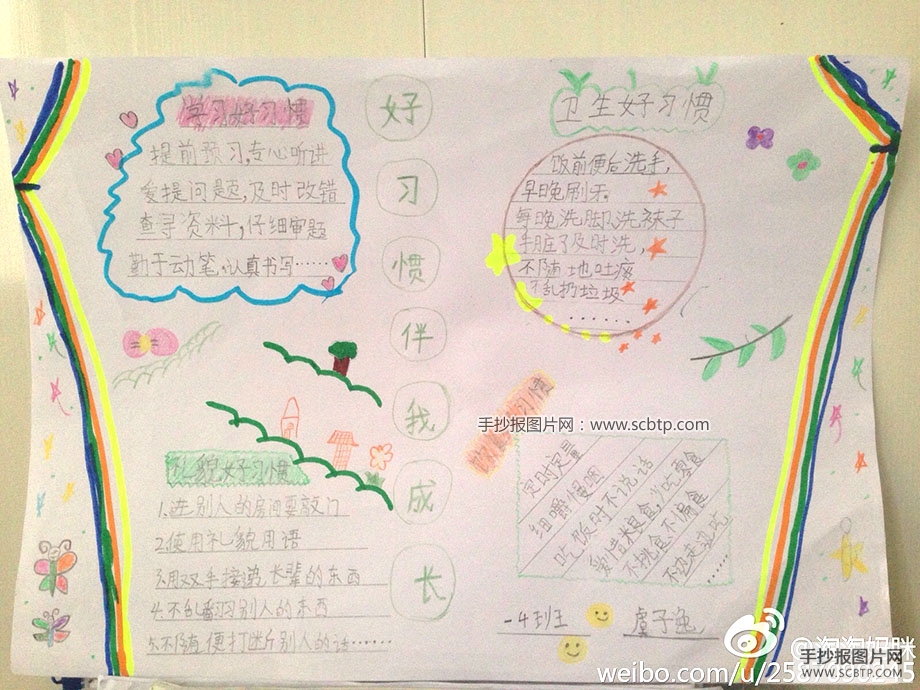 学习好习惯
提前预习,专心听讲
爱提问题,及时改错
查寻资料,仔细审题
勤于动笔,认真书写……
好
习
惯
伴
我
成
长
卫生好习惯
饭前便后洗手,
早晚刷牙。
每晚洗脚、洗袜子
手脏了及时洗,
不随地吐痰
不乱扔垃圾
......
礼貌好习惯
1.进别人的房间要敲门
2.使用礼貌用语
3.用双手接递长辈的东西
4.不乱翻别人的东西
5.不随便打断别人的话……
习惯
手抄报图片网:www.scbtp.com
定时定量
细嚼慢咽
吃饭时不说话
爱惜粮食,少吃零食
不挑食不偏食
......
一4班
虞子逸
@淘淘妈咪
weibo.com/u/25
手抄报图片网
WWW.SCBTP.COM